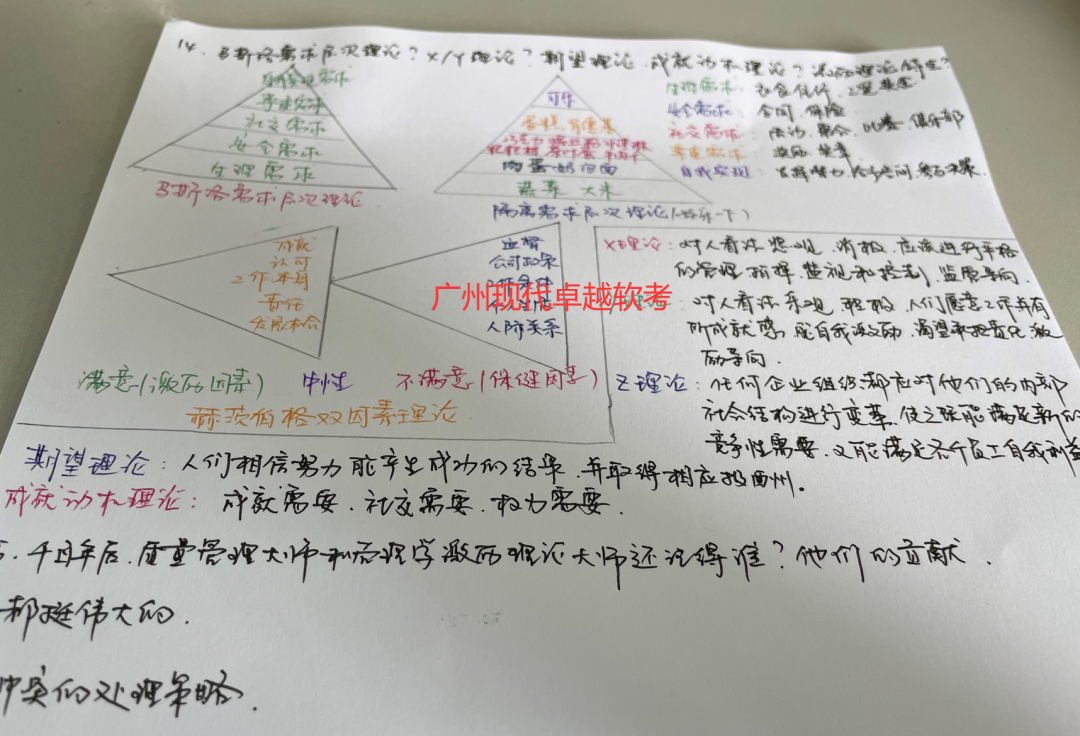 14. 马斯洛需求层次理论？X/Y理论？期望理论 成就动机理论？
自我实现需求
尊重需求
社交需求
安全需求
生理需求
马斯洛需求层次理论
可乐
肉蛋奶 泡面
蔬菜 大米
隔离需求层次理论(娱乐一下)
生理需求：
安全需求：合同 保险
社交需求： 聚会 比赛 俱乐部
尊重需求：
自我实现：
成就
认可
工作本身
责任
发展机会
满意(激励因素)
中性
监督
公司政策
人际关系
不满意(保健因素)
赫茨伯格双因素理论
广州现代卓越软考
X理论：对人看法悲观、消极，应该进行严格
的管理 指挥 监视和控制，监质导向.
对人看法乐观 积极，人们愿意工作并有
所成就感，能自我激励，渴望 激
励导向.
Z理论：任何企业组织都应对他们的内部
社会结构进行变革，使之既能满足新的
竞争性需要，又能满足各个员工自我利益
期望理论：人们相信努力能产生成功的结果，并取得相应报酬州。
成就动机理论：成就需要、社交需要、权力需要.
千百年后，质量管理大师和管理学激励理论大师还记得谁？他们的贡献.
都挺伟大的.
冲突的处理策略.